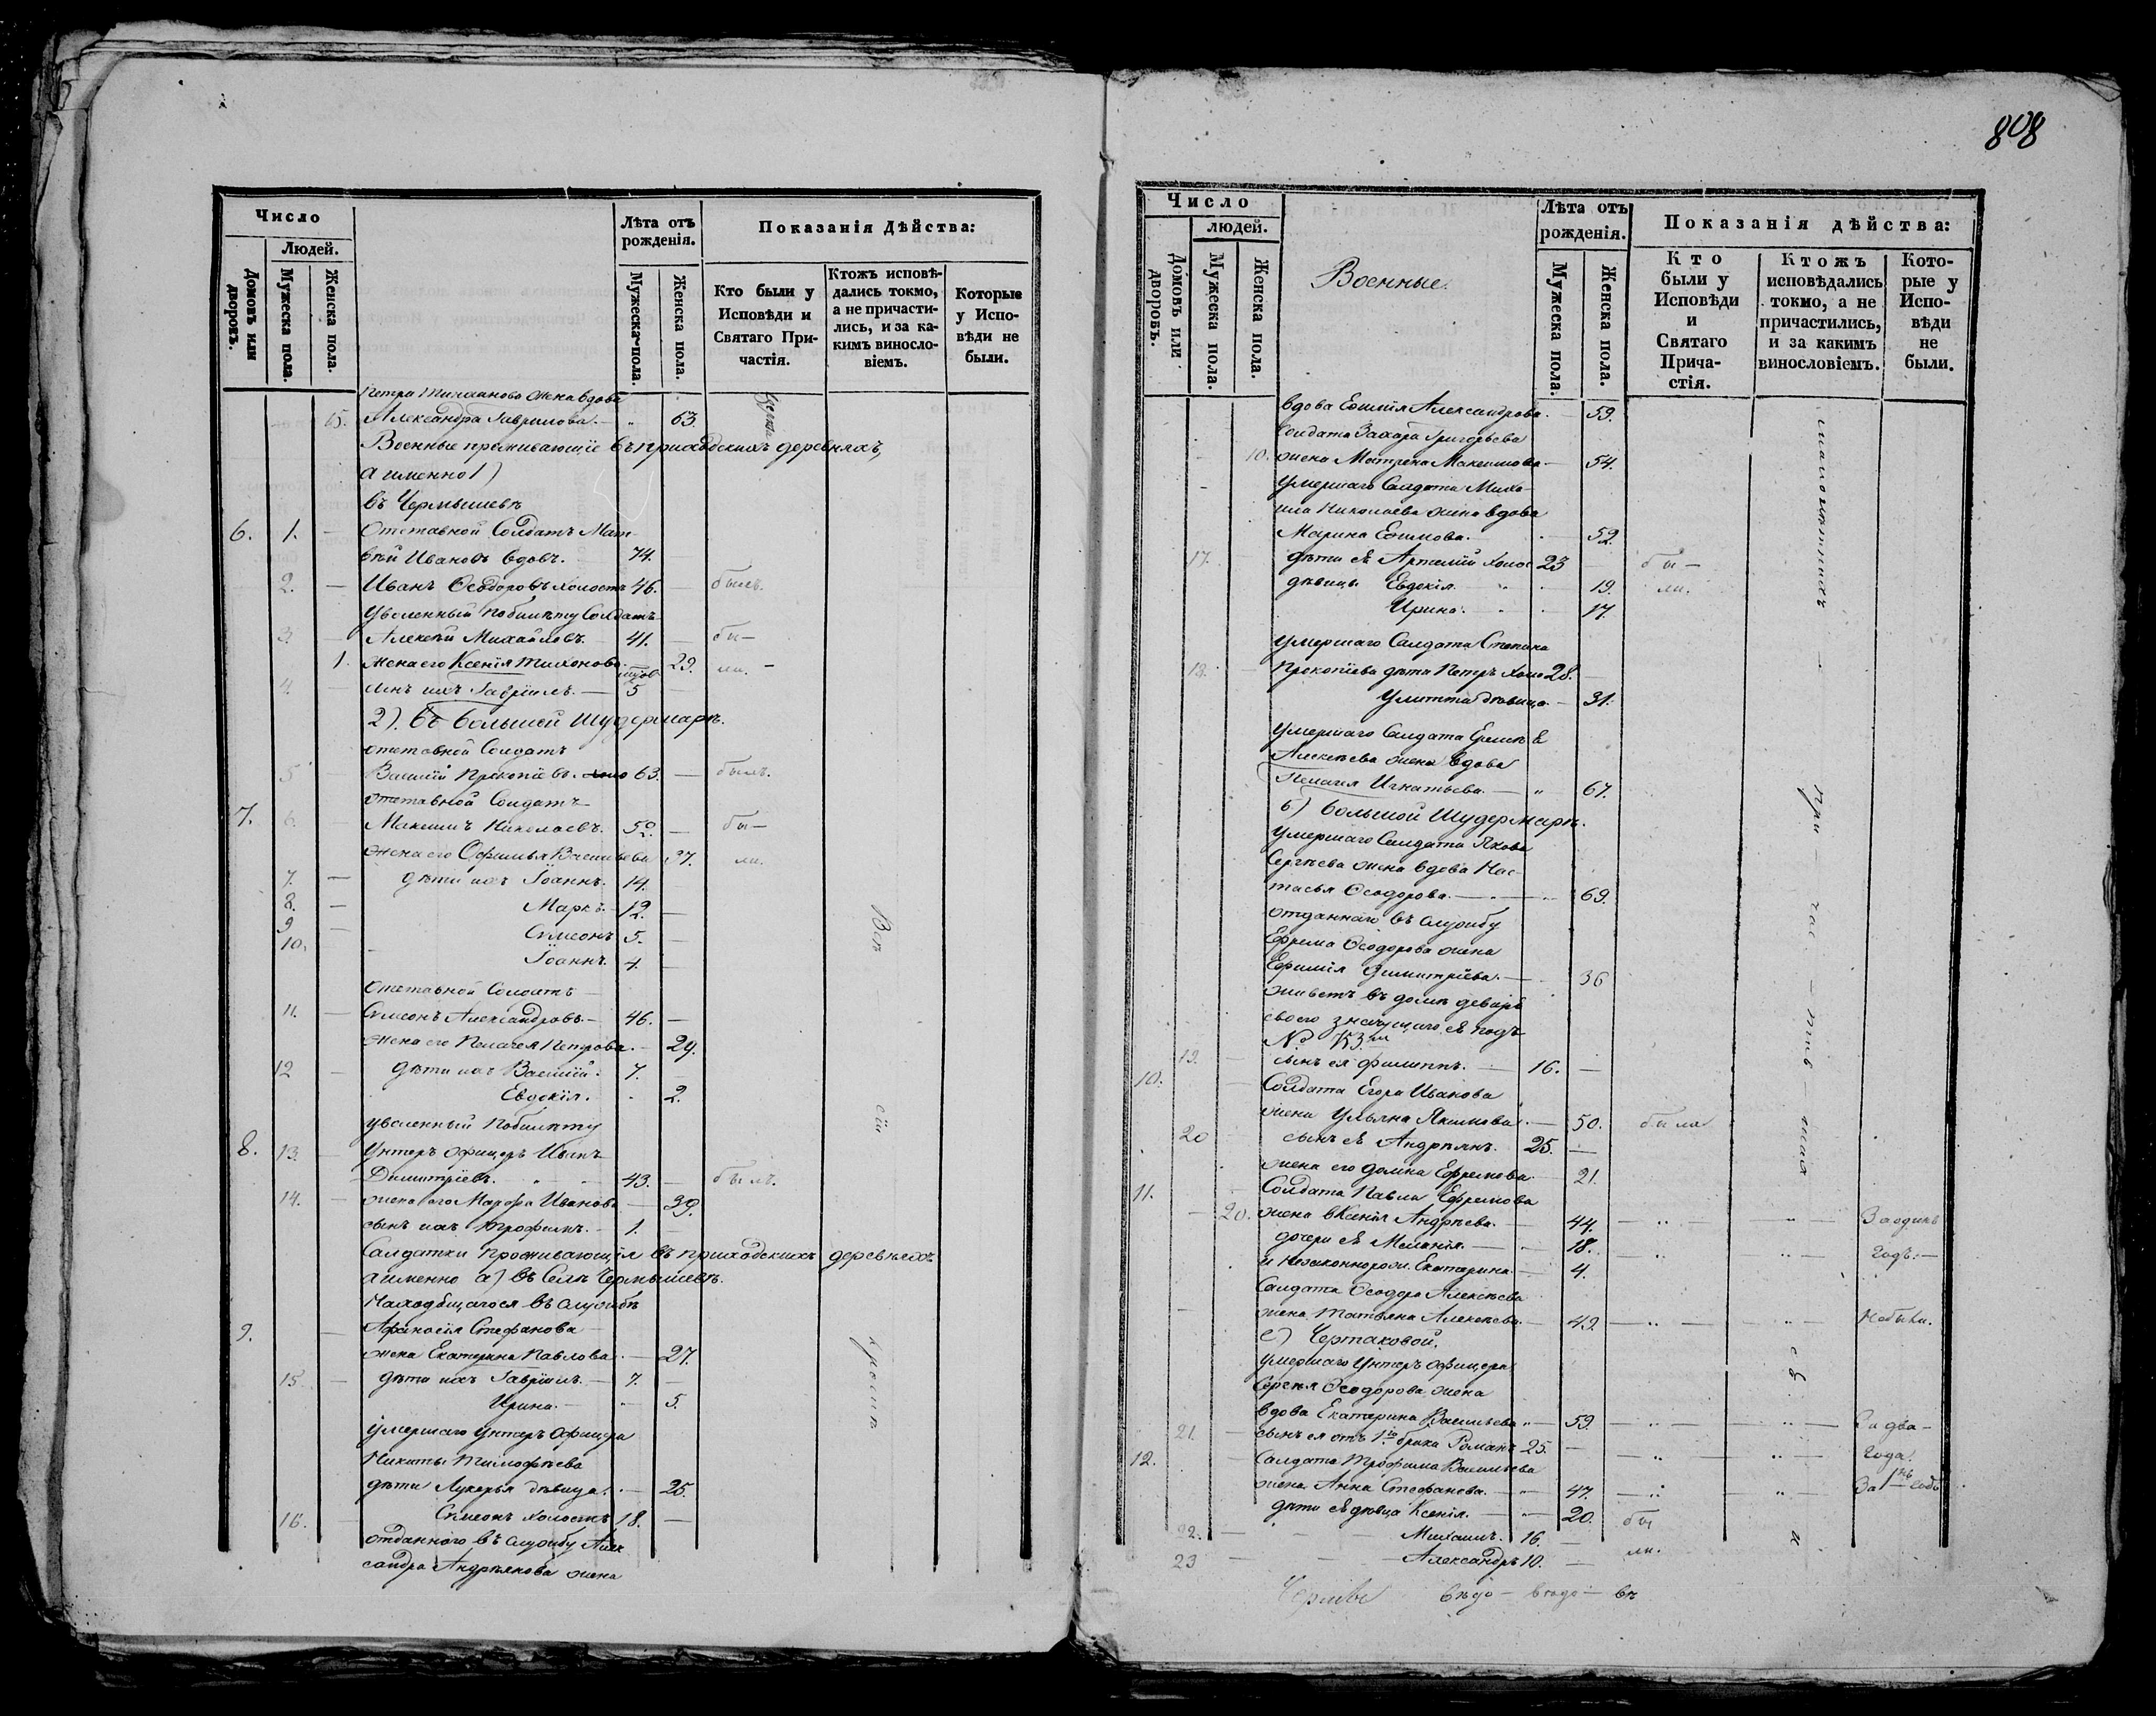 808
Число
Людей.
Домовъ или дворовъ.
Мужеска пола.
Женска пола.
Лѣта отъ рожденія.
Мужеска-пола.
Женска пола.
Показанія Дѣйства:
Кто были у Исповѣди и Святаго Причастія.
Ктожъ исповѣдались токмо, а не причастились, и за какимъ винословіемъ.
Которые у Исповѣди не были.
Петра жена вдова
15. Александра Гаврилова. 63.
Военные проживающіе въ приходскихъ деревняхъ,
а именно 1)
въ Чермышевѣ
6. 1. Отставной Солдатъ Мат-
вѣй Ивановъ вдовъ. 74.
2. Иванъ Ѳеодоровъ холостъ 46. былъ.
Уволенный по билѣту Солдатъ
3. Алексѣй Михайловъ. 41. бы-
1. Жена его Ксенія Тихонова. 29. ли.
4. сынъ ихъ Гавріилъ. 5
2). въ большой Шудермарѣ.
отставной Солдатъ
5 Василій Прокопіевъ. 63. былъ.
отставной Солдатъ
7. 6. Максимъ Николаевъ. 52. бы-
жена его Офимья Васильева 37. ли.
7. дѣти ихъ Іоаннъ. 14.
8. Маркъ. 12.
9 Сѵмеонъ 5.
10. Іоаннъ. 4.
Отставной Солдатъ
11. Сѵмеонъ Александровъ. 46.
жена его Пелагея Петрова. 29.
12 дѣти ихъ Василій. 7.
Евдокія. 2.
уволенный по билѣту
8. 13. Унтеръ офицеръ Иванъ
Димитріевъ. 43. былъ.
14. жена его Марѳа Иванова 39.
сынъ ихъ Трофимъ. 1.
Солдатки проживающія въ приходскихъ деревняхъ
а именно а) въ Селѣ Чермышевѣ.
Находящагося въ службѣ
9. Афанасія Стефанова
жена Екатерина Павлова. 27.
15 дѣти ихъ Гавріилъ. 7.
Ирина. 5.
умершаго Унтеръ Офицера
Никиты Тимофѣева
дѣти Лукерья дѣвица. 25.
16. Сѵмеонъ холостъ 18.
отданнаго въ службу Алек
сандра Андреянова жена
Всѣ
сіи
кромѣ
Число
людей.
Домовъ или дворовъ.
Мужеска пола.
Женска пола.
Военные.
Лѣта отъ рожденія.
Мужеска пола.
Женска пола.
Показанія дѣйства:
Кто были у Исповѣди и Святаго Причастія.
Ктожъ исповѣдались токмо, а не причастились, и за какимъ винословіемъ.
Которые у Исповѣди не были.
вдова Александрова. 59.
Солдата Захара Григорьева
10. жена Матрена Максимова 54.
Умершаго Солдата Миха-
ила Николаева жена вдова
Марина Ефимова. 52.
17. дѣти ея Артемій холос 23 бы-
дѣвицы Евдокія. 19. ли.
Ирина. 17.
умершаго Солдата Степана
18. Прокопіева дѣти Петръ холо 28.
Улитта дѣвица. 31.
умершаго Солдата
Алексѣева жена вдова
Пелагея Игнатьева. 67.
б) большой Шудермарѣ.
умершаго Солдата Якова
Сергѣева жена вдова Нас-
тасья Ѳеодорова. 69.
отданнаго въ службу
Ефрема Ѳеодорова жена
Ефимія Димитріева. 36
живетъ въ домѣ деверя
своего подъ
№ 153.
19. сынъ ея Филиппъ. 16.
10. Солдата Егора Иванова
жена Ульяна Якимова. 50. была
20 сынъ ея Андреянъ. 25.
жена его Домна Ефремова 21.
11. Солдата Павла Ефремова
20. жена Ксенія Андреева. 44. За одинъ
дочери ея Меланія. 18. годъ.
и Незаконнорож. Екатерина. 4.
Солдата Ѳеодора Алексѣева
жена Татьяна Алексѣева. 49. Небыли.
с) Чертаковой.
умершаго Унтеръ Офицера
Сергѣя Ѳеодорова жена
вдова Екатерина Васильева 59. За два
21. сынъ ея отъ 1го брака Романъ 25. года.
12. Солдата Трофима Васильева
жена Анна Стефанова. 47. За 1нъ годъ
дѣти ея дѣвица Ксенія. 20. бы
22. Михаилъ. 16.
23 Александръ 10. ли.
малолѣтнихъ
при - час - тив
шихся
св.
и